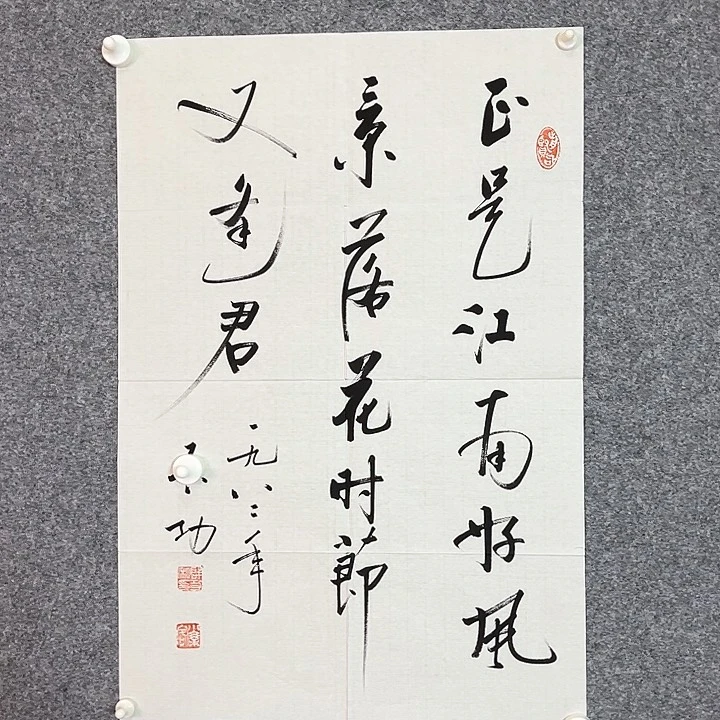 正是江南好風
景落花时節
又逢君
一九八二年
功